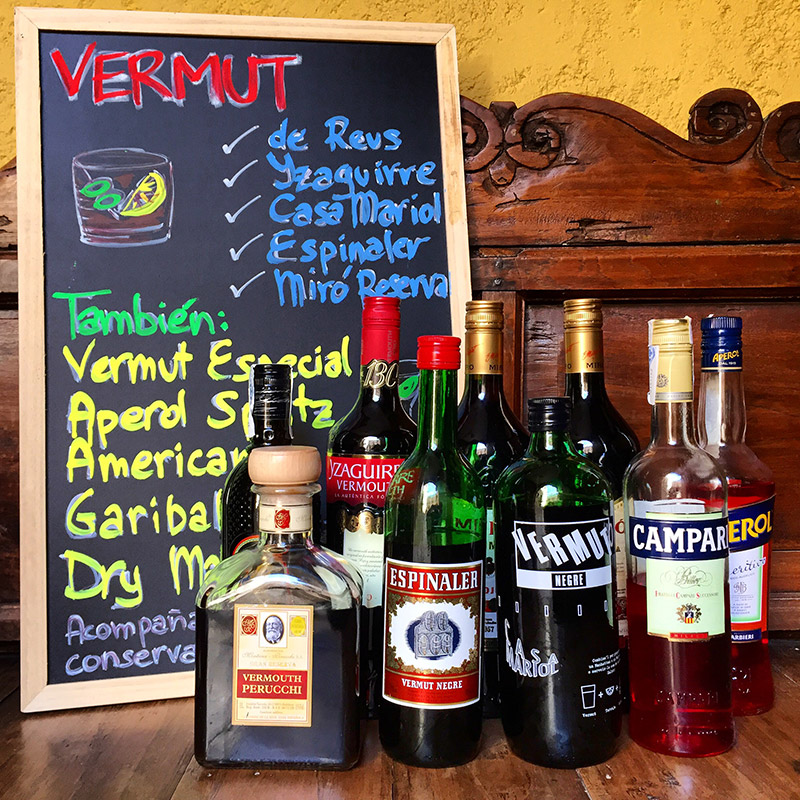 VERMUT
de Reus
Yzaguirre
Casa Mariol
Espinaler
Miró Reserva
También:
Vermut Especial
Aperol Spritz
American
Garibal
Dry M
Acompaña
conserva
1890
YZAGUIRRE
VERMOUTH
VERMOUTH
PERUCCHI
ESPINALER
VERMUT NEGRE
VERMUT
NEGRE
CASA
MARIOL
CAMPARI
MILANO
APEROL
APEROL
BARBIERI